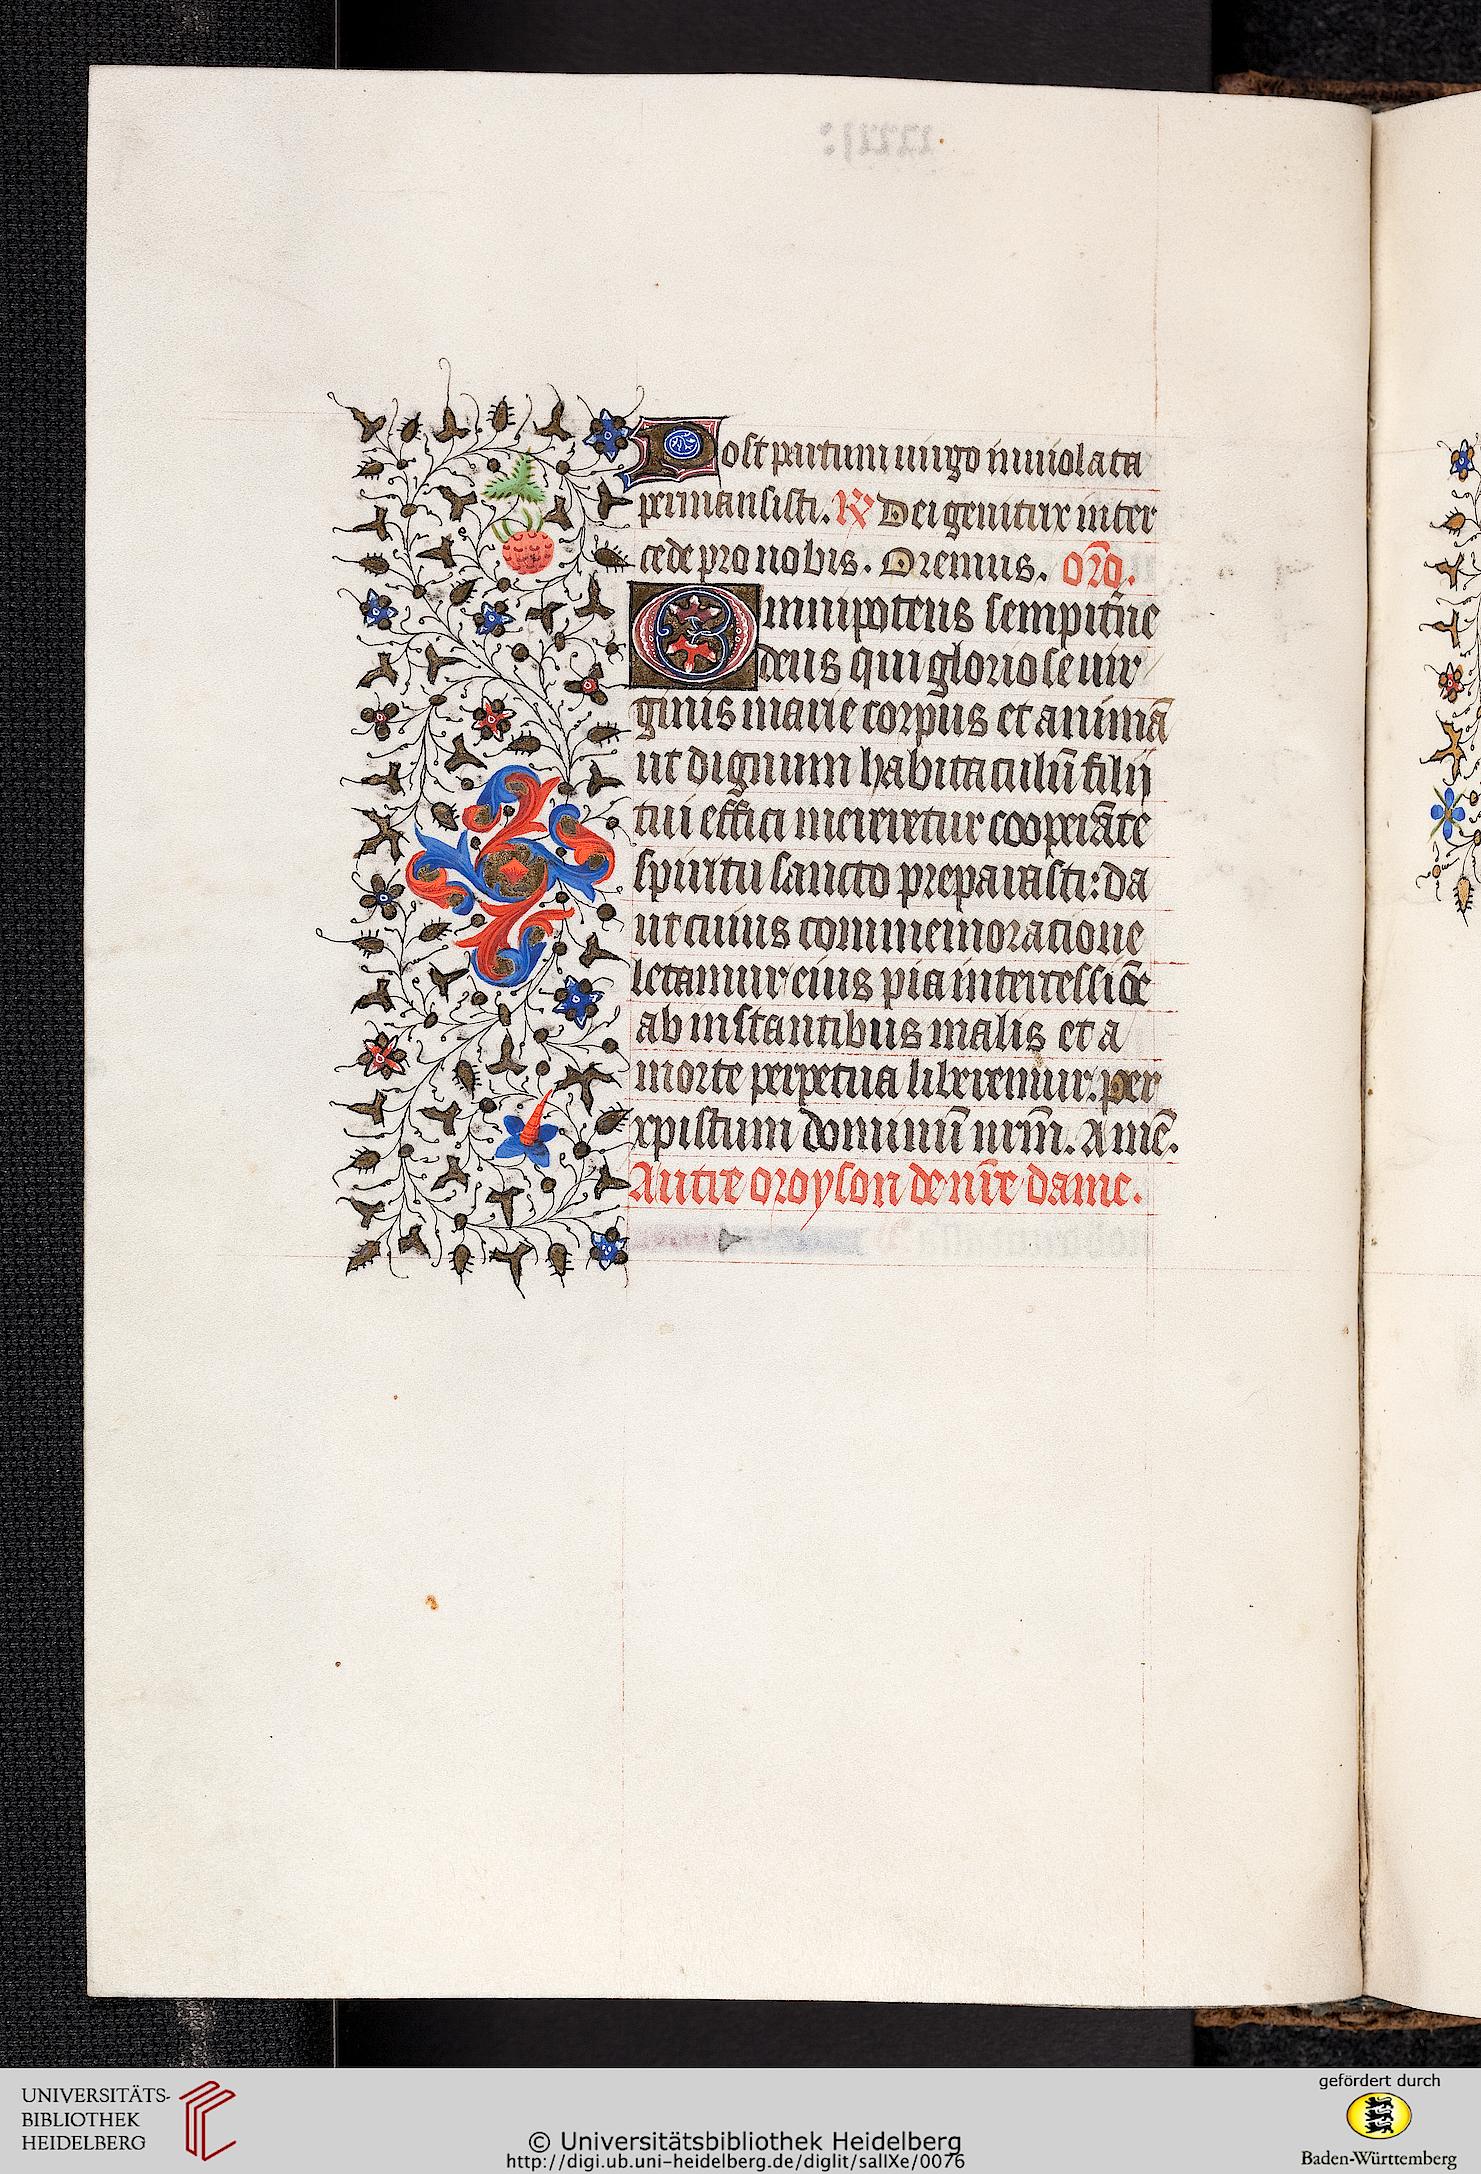 Post partum uirgo inuiolata
permansisti. ℟ Dei genitrix inter
cede pro nobis. Oremus. or̄o.
Omnipotens sempit̄ne
deus qui gloriose uir
ginis marie corpus et animā
ut dignum habitaculū filii
tui effici mereretur cooperāte
spiritu sancto preparasti: da
ut cuius commemoratione
letamur eius pia intercessiōe
ab instantibus malis et a
morte perpetua liberemur. per
xpistum dominū nrm̄. Amē.
Autre oroyson de nr̄e dame.
UNIVERSITÄTS-
BIBLIOTHEK
HEIDELBERG
© Universitätsbibliothek Heidelberg
http://digi.ub.uni-heidelberg.de/diglit/salIXe/0076
gefördert durch
Baden-Württemberg